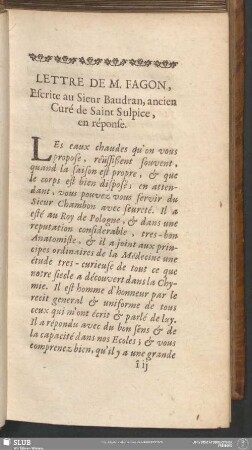 LETTRE DE M. FAGON,
Escrite au Sieur Baudran, ancien
Curé de Saint Sulpice,
en réponse.
LEs eaux chaudes qu'on vous
propose, réüssissent souvent,
quand la saison est propre, & que
le corps est bien disposé; en atten-
dant, vous pouvez vous servir du
Sieur Chambon avec seureté. Il a
esté au Roy de Pologne, & dans une
reputation considerable, tres-bon
Anatomiste. & il a joint aux prin-
cipes ordinaires de la Medecine une
étude tres-curieuse de tout ce que
nostre siecle a découvert dans la Chy-
mie. Il est homme d'honneur par le
recit general & uniforme de tous
ceux qui m'ont écrit & parlé de luy.
Il a répondu avec du bon sens & de
la capacité dans nos Ecoles; & vous
comprenez bien, qu'il y a une grande
ï ij
SLUB